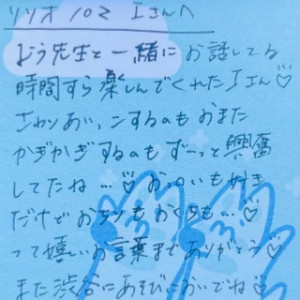 リリオ102 Iさんへ
どう先生と一緒にお話してる
時間すら楽しんでくれたIさん♡
さわりあいっこするのもおまた
かぎかぎするのもずーっと興奮
してたね…♡おっぱいも好き
だけどおちりもおくちも…♡
って嬉しいお言葉までありがとう♡
また渋谷にあそびにおいでね♡